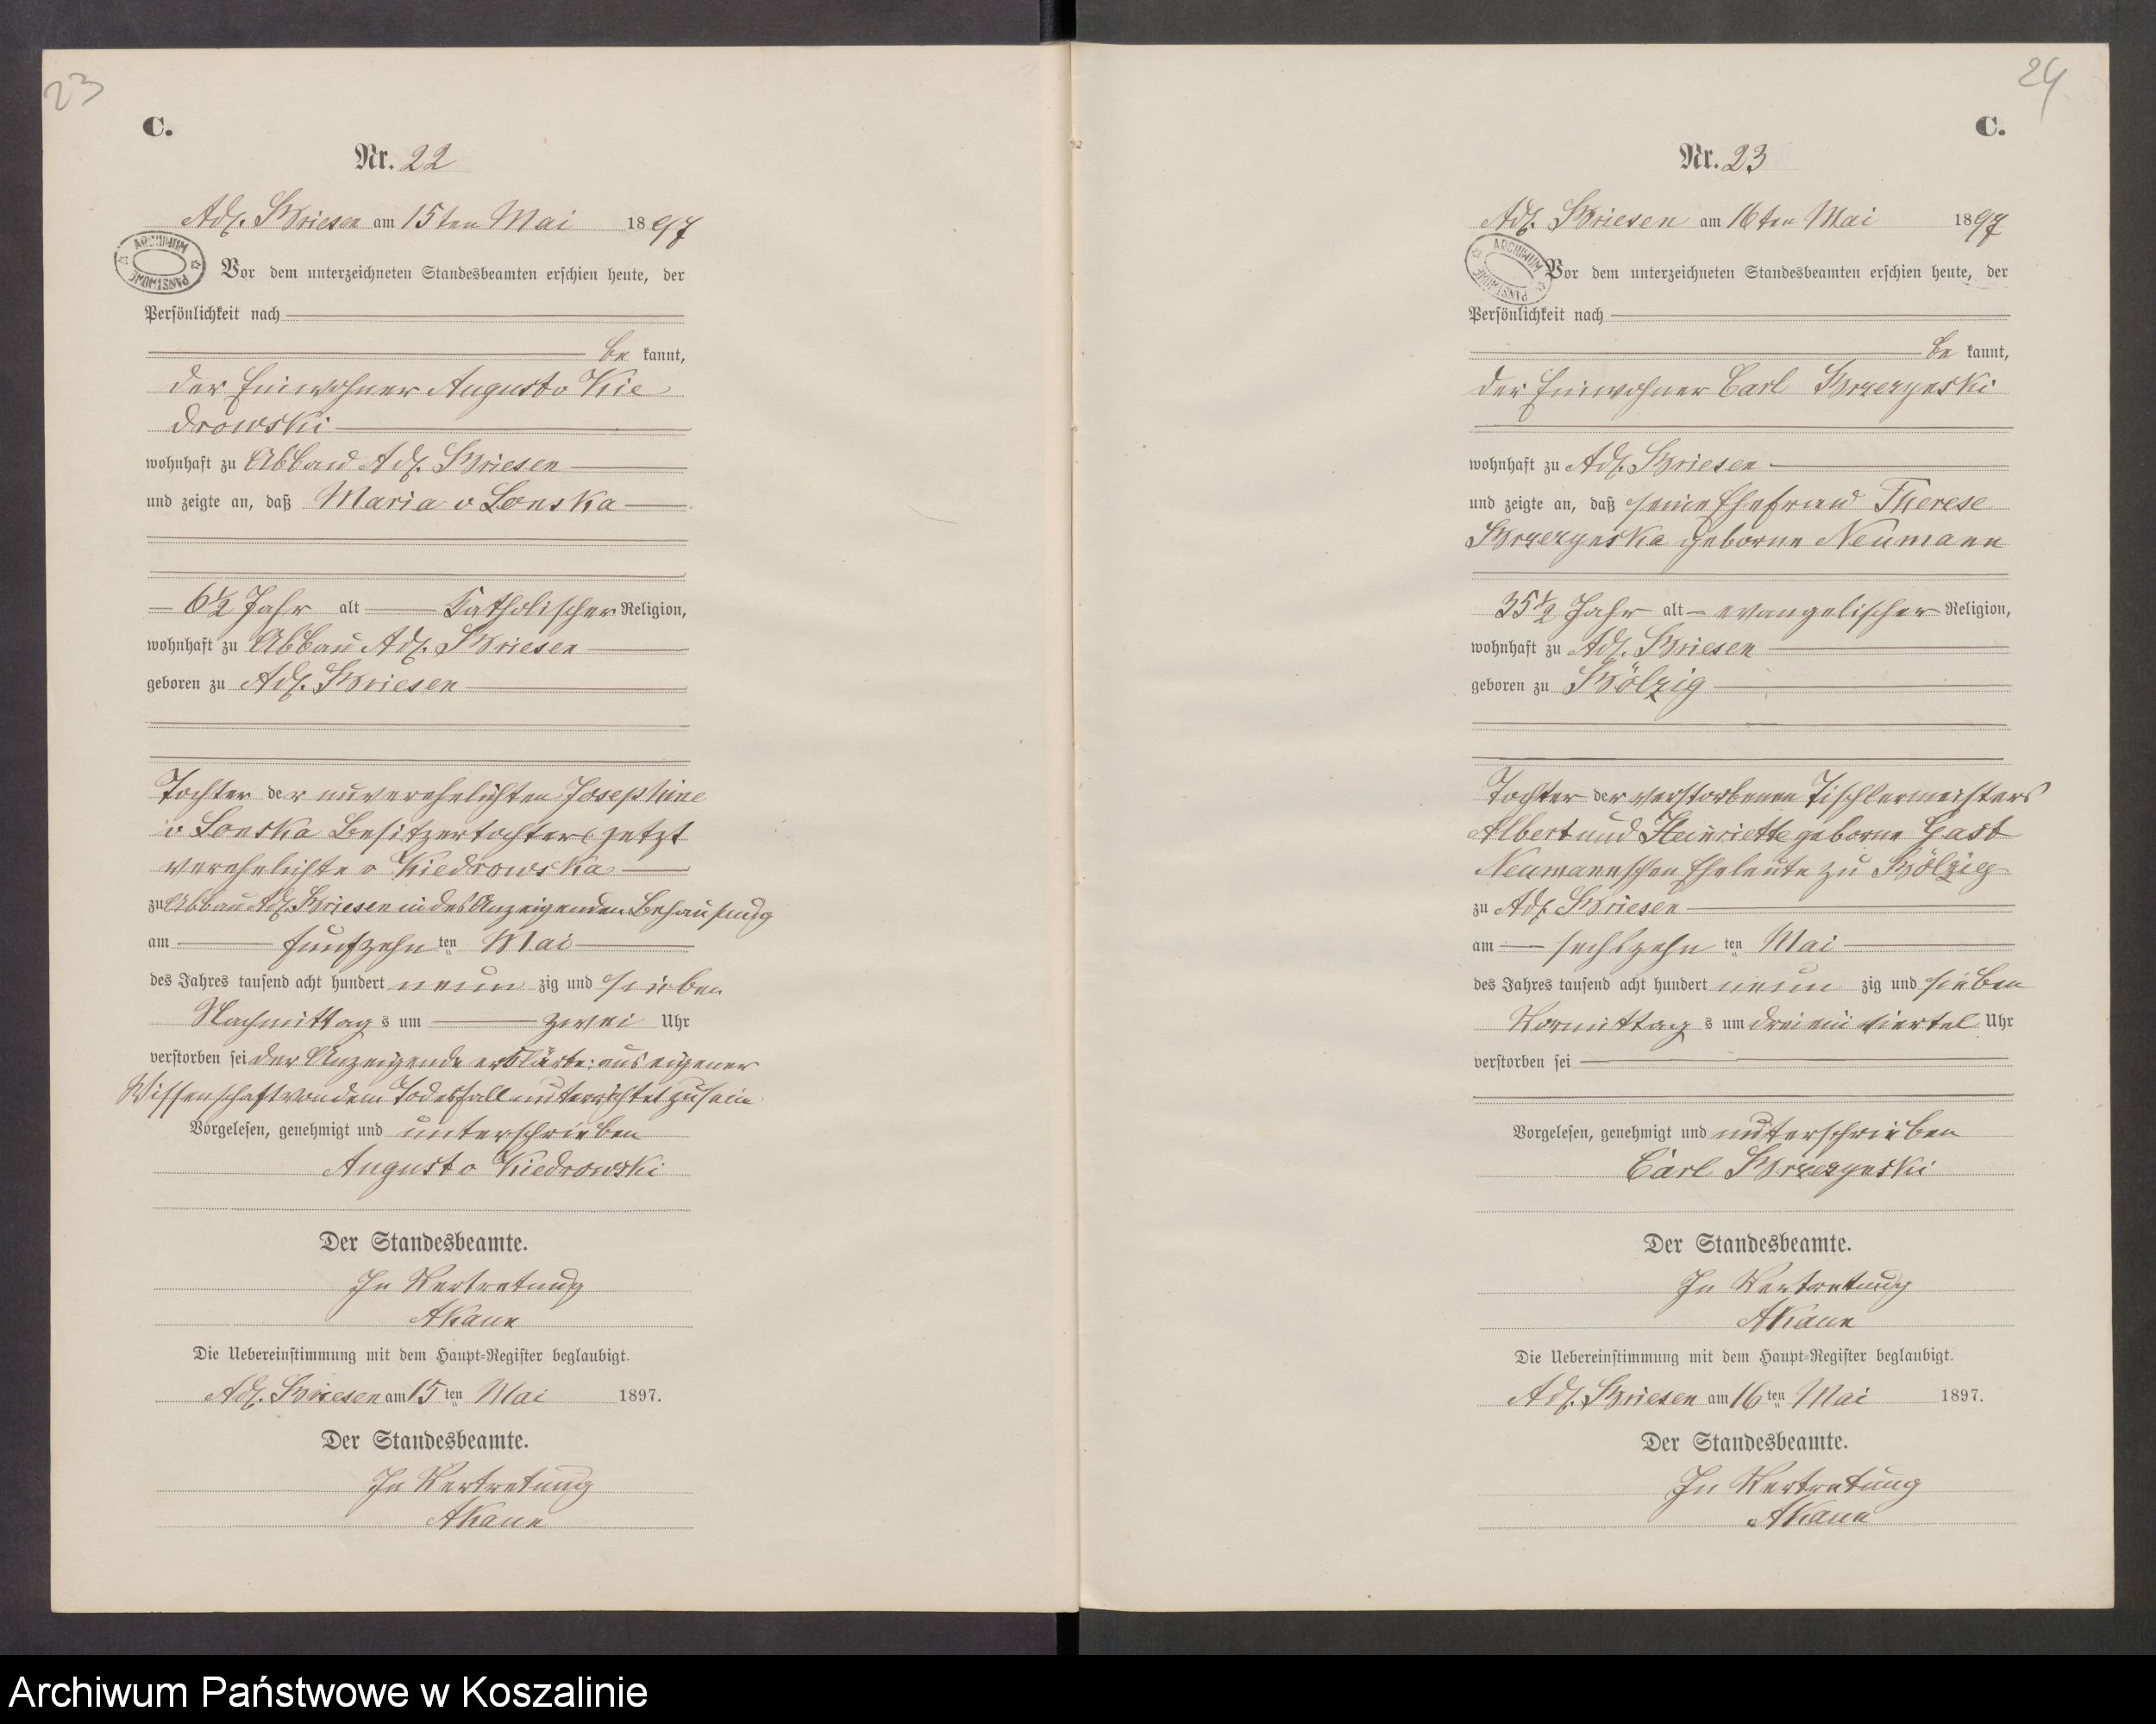 23
C.
Nr. 22
Adl. Briesen am 15ten Mai 1897
ARCHIWUM PAŃSTWOWE
Vor dem unterzeichneten Standesbeamten erschien heute, der
Persönlichkeit nach
be kannt,
der Einwohner August v Kie
drowski
wohnhaft zu Abbau Adl. Briesen
und zeigte an, daß Maria v Lonska
6½ Jahr alt katholischer Religion,
wohnhaft zu Abbau Adl. Briesen
geboren zu Adl. Briesen
Tochter der unverehelichten Josephine
v Lonska Besitzertochter jetzt
verehelichte v Kiedrowska
zu Abbau Adl. Briesen in des Anzeigenden Behausung
am fünfzehn ten Mai
des Jahres tausend acht hundert neun zig und sieben
Nachmittag s um zwei Uhr
verstorben sei der Anzeigende erklärte: aus eigener
Wissenschaft von dem Todesfall unterrichtet zu sein
Vorgelesen, genehmigt und unterschrieben
August v Kiedrowski
Der Standesbeamte.
In Vertretung
A Kann
Die Uebereinstimmung mit dem Haupt-Register beglaubigt.
Adl. Briesen am 15 ten Mai 1897.
Der Standesbeamte.
In Vertretung
A Kann
24
C.
Nr. 23
Adl. Briesen am 16ten Mai 1897
ARCHIWUM PAŃSTWOWE
Vor dem unterzeichneten Standesbeamten erschien heute, der
Persönlichkeit nach
be kannt,
der Einwohner Carl Brzezynski
wohnhaft zu Adl. Briesen
und zeigte an, daß seine Ehefrau Therese
Brzezynska geborne Neumann
35½ Jahr alt evangelischer Religion,
wohnhaft zu Adl. Briesen
geboren zu Bölzig
Tochter der verstorbenen Tischlermeisters
Albert und Heinriette geborne Gast
Neumannschen Eheleute zu Bölzig
zu Adl. Briesen
am sechszehn ten Mai
des Jahres tausend acht hundert neun zig und sieben
Vormittag s um drei ein viertel Uhr
verstorben sei
Vorgelesen, genehmigt und unterschrieben
Carl Brzezynski
Der Standesbeamte.
In Vertretung
A Kann
Die Uebereinstimmung mit dem Haupt-Register beglaubigt.
Adl. Briesen am 16 ten Mai 1897.
Der Standesbeamte.
In Vertretung
A Kann
Archiwum Państwowe w Koszalinie